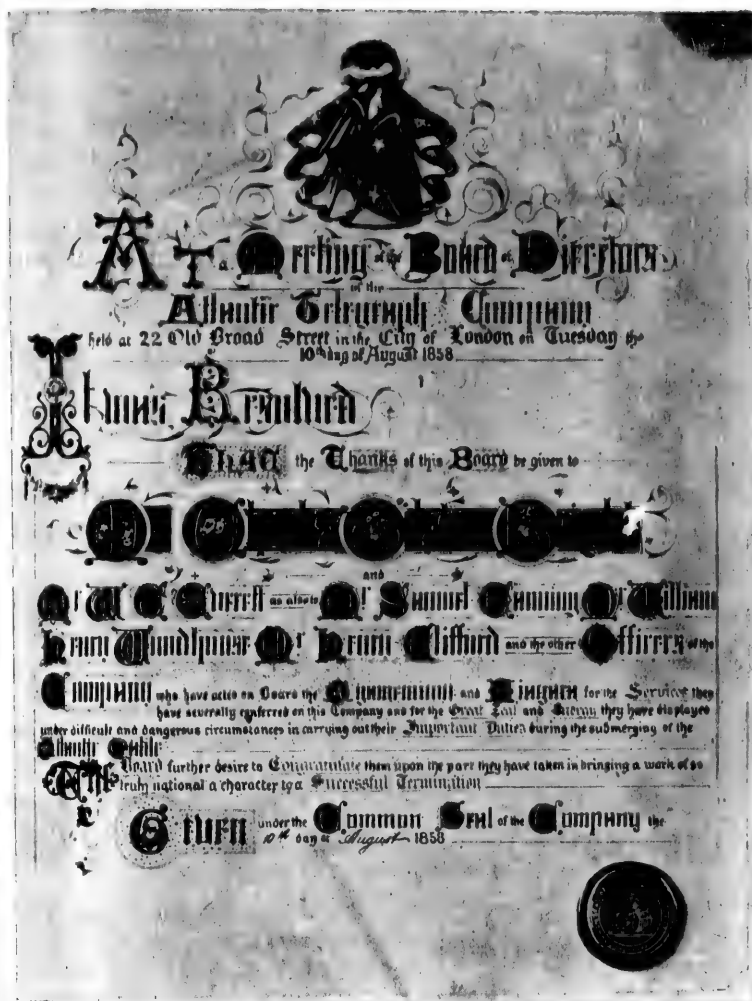 At a Meeting of the Board of Directors
of the
Atlantic Telegraph Company
held at 22 Old Broad Street in the City of London on Tuesday the
10th day of August 1858
It was Resolved
That the Thanks of this Board be given to
and
Mr W E Everett as also to Mr Samuel Canning Mr William
Henry Woodhouse Mr Henry Clifford and the other Officers of the
Company who have acted on Board the Agamemnon and Niagara for the Services they
have severally conferred on this Company and for the Great Zeal and Energy they have displayed
under difficult and dangerous circumstances in carrying out their Important Duties during the submerging of the
Atlantic Cable
The Board further desire to Congratulate them upon the part they have taken in bringing a work of so
truly national a character to a Successful Termination
Given under the Common Seal of the Company the
10th day of August 1858